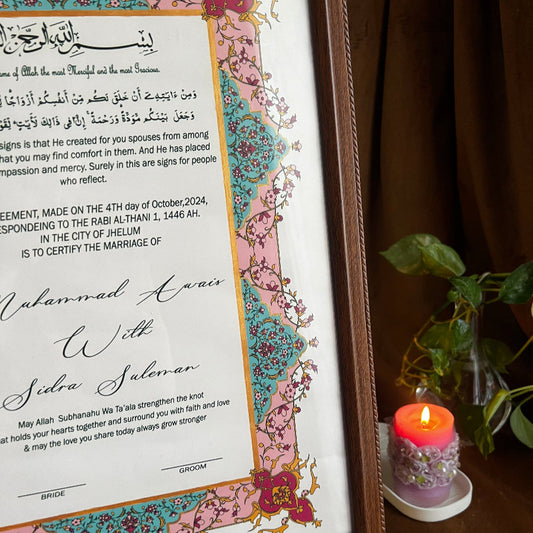 بِسْمِ اللهِ الرَّحْمٰنِ
ame of Allah the most Merciful and the most Gracious.
وَمِنْ ءَايَٰتِهِۦٓ أَنْ خَلَقَ لَكُم مِّنْ أَنفُسِكُمْ أَزْوَٰجًا
وَجَعَلَ بَيْنَكُم مَّوَدَّةً وَرَحْمَةً ۚ إِنَّ فِى ذَٰلِكَ لَءَايَٰتٍ
signs is that He created for you spouses from among
hat you may find comfort in them. And He has placed
mpassion and mercy. Surely in this are signs for people
who reflect.
EEMENT, MADE ON THE 4TH day of October,2024,
ESPONDING TO THE RABI AL-THANI 1, 1446 AH.
IN THE CITY OF JHELUM
IS TO CERTIFY THE MARRIAGE OF
Muhammad Awais
With
Sidra Suleman
May Allah Subhanahu Wa Ta'ala strengthen the knot
at holds your hearts together and surround you with faith and love
& may the love you share today always grow stronger
BRIDE
GROOM